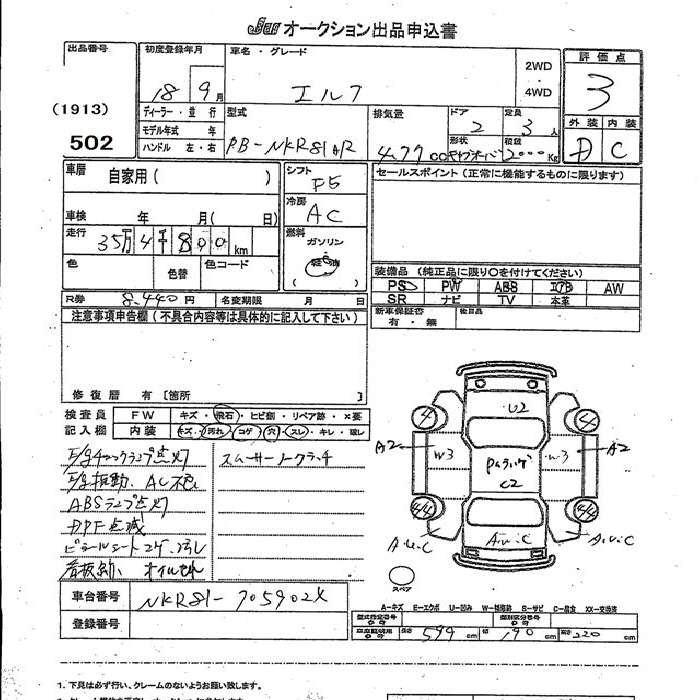 JU オークション出品申込書
出品番号
(1913)
502
初度登録年月
18 9月
車名・グレード
エルフ
2WD
・
4WD
評価点
3
ディーラー・並行
モデル年式 年
ハンドル 左・右
型式
PB-NKR81AR
排気量
4.77 cc
ドア
2
定員
3人
形状
積載
2000Kg
外装 内装
D C
車歴
自家用( )
車検 年 月( 日)
走行
35万4千800km
色
色替
色コード
シフト
F5
冷房
AC
燃料
ガソリン
軽油
( )
セールスポイント(正常に機能するものに限ります)
装備品(純正品に限り○を付けてください)
PS PW ABS エアB AW
SR ナビ TV 本革
新車保証書
有・無
後日品
R券 8,440円 名変期限 月 日
注意事項申告欄(不具合内容等は具体的に記入して下さい)
修復歴 有[箇所 ]
検査員
記入欄
FW キズ・飛石・ヒビ割・リペア跡・×要
内装 キズ・汚れ・コゲ・穴・スレ・キレ・破レ
E/gチェックランプ点灯
スムーサーノークラッチ
E/g振動、AC不良
ABSランプ点灯
DPF点滅
ビニールシートコゲ、汚レ
オイルもれ
U2
4 4
A2 W3 Pムラ W3 A2
C2
44 44
A.U.C A.U.C A.U.C
スペア
A-キズ E-エクボ U-凹み W-補修跡 S-サビ C-腐食 XX-交換済
車台番号 NKR81-705902X
登録番号
型式指定番号
類別区分番号
長さ 599cm 幅 190cm 高さ 220cm
1. 下見は必ず行い、クレームのないようお願い致します。